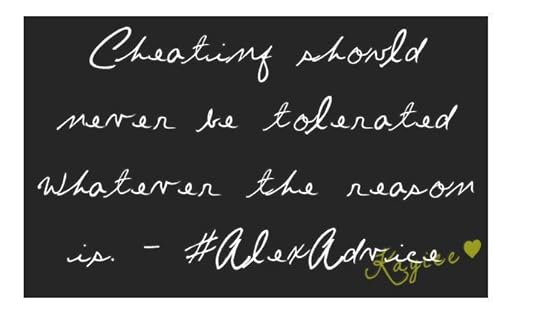 Cheating should
never be tolerated
whatever the reason
is. - #AlexAdvice
Kaycee